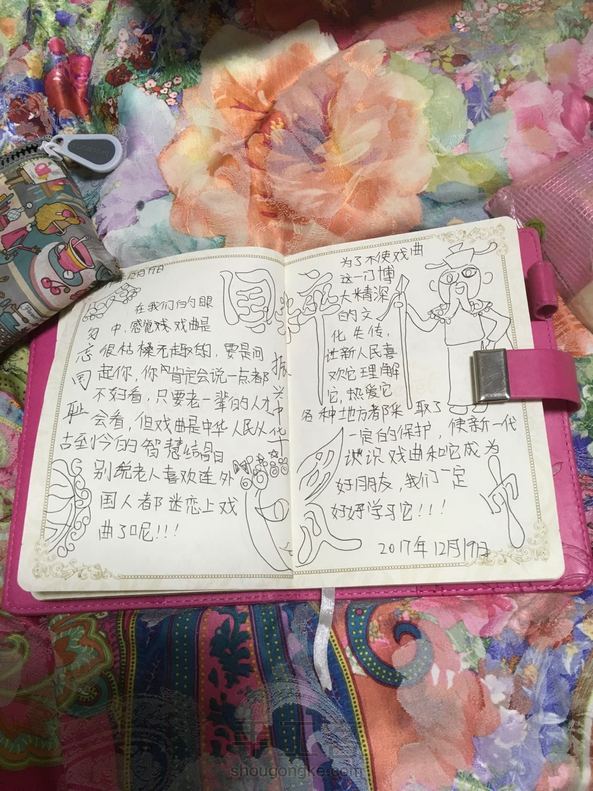 12月19日
国粹
在我们们的眼
中,感觉戏戏曲是
很枯橾无趣的,要是问
起你,你肯定会说一点都
不好看,只要老一辈的人才
会看,但戏曲是中华人民从
古至今的智慧结晶
别说老人喜欢连外
国人都迷恋上戏
曲了呢!!!
勿忘国耻
振兴中华
为了不使戏曲
这一门博
大精深
的文
化失传,
让新人民喜
欢它理解
它,热爱它
各种地方都采取了
一定的保护,使新一代
识识戏曲和它成为
好朋友,我们一定
好好学习它!!!
2017年12月19日
shougongke.com